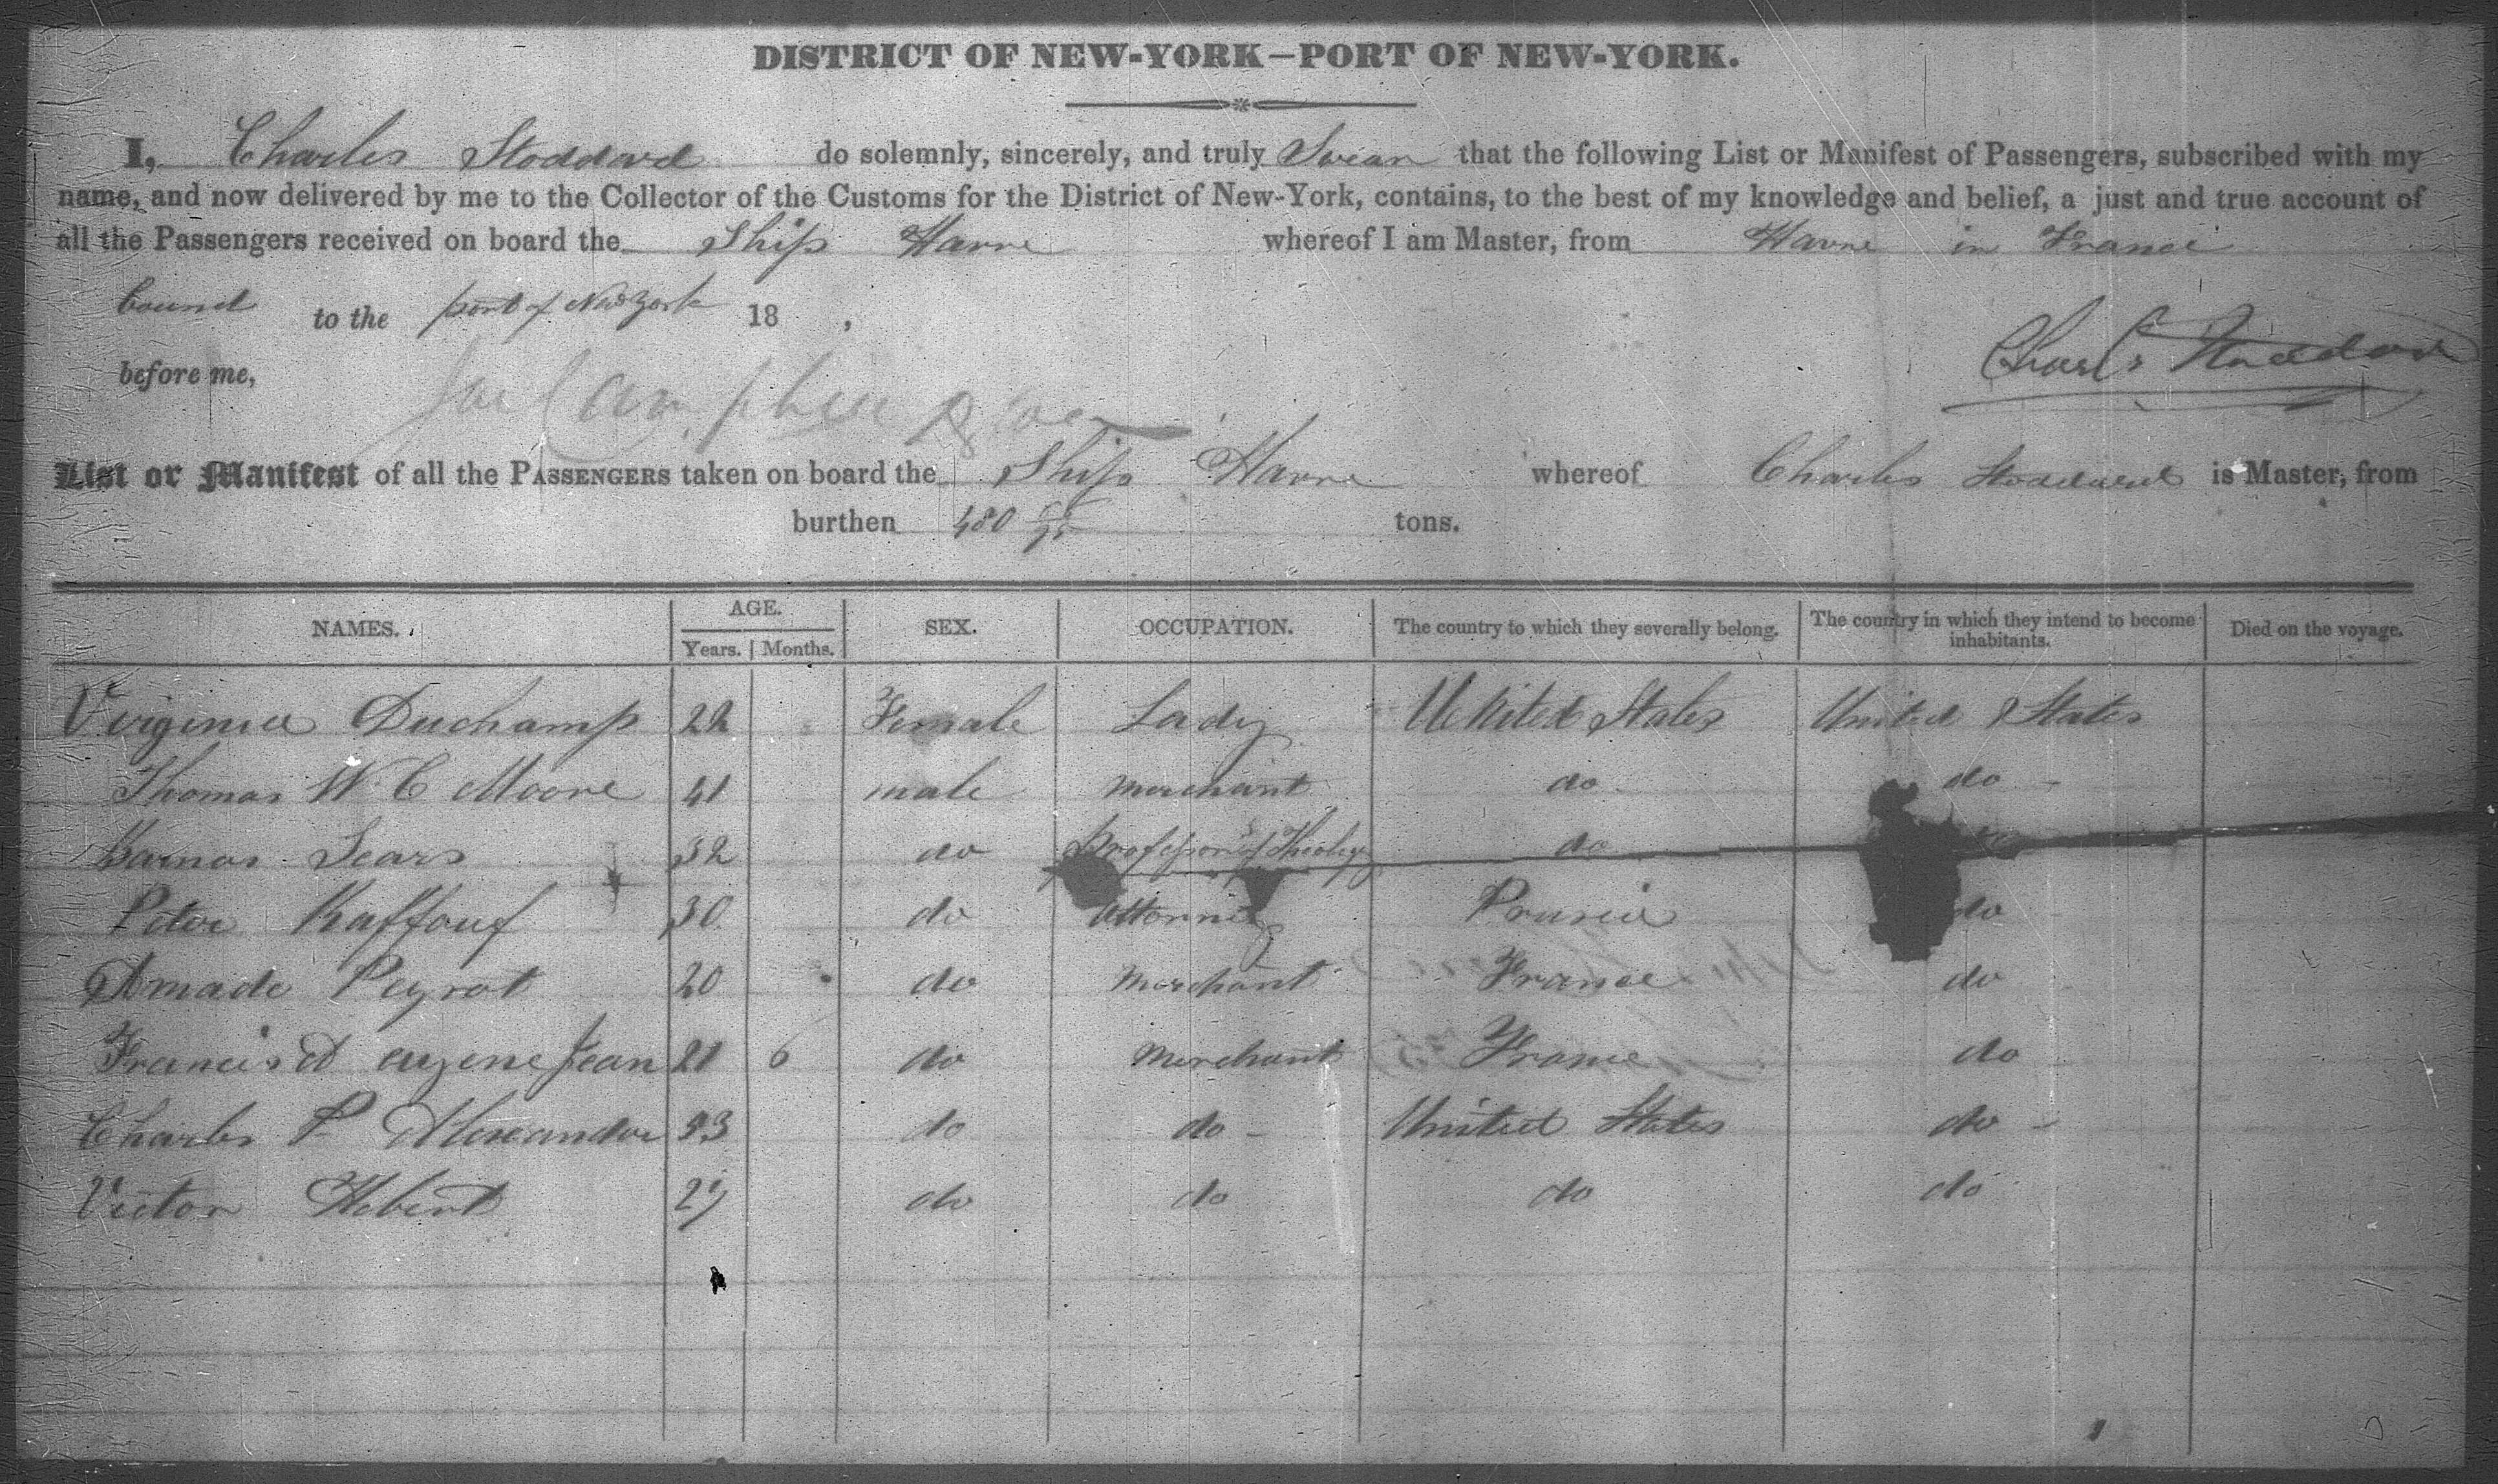 DISTRICT OF NEW-YORK—PORT OF NEW-YORK.
I, Charles Stoddard do solemnly, sincerely, and truly Swear that the following List or Manifest of Passengers, subscribed with my
name, and now delivered by me to the Collector of the Customs for the District of New-York, contains, to the best of my knowledge and belief, a just and true account of
all the Passengers received on board the Ship Havre whereof I am Master, from Havre in France
bound to the port of New York 18 ,
Charles Stoddard
before me,
List or Manifest of all the PASSENGERS taken on board the Ship Havre whereof Charles Stoddard is Master, from
burthen 480 tons.
NAMES. AGE. SEX. OCCUPATION. The country to which they severally belong. The country in which they intend to become inhabitants. Died on the voyage.
Years. Months.
Virginia Duchamp 22 Female Lady United States United States
Thomas W C Moore 41 male merchant do do
Barnas Sears 32 do Professor of Theology do
Peter 30 do Attorney Prussia do
Amade Peyrot 20 do Merchant France do
Francis D eugene Jean 21 6 do Merchant France do
Charles P Alexander 23 do do United States do
Victor Hebert 27 do do do do